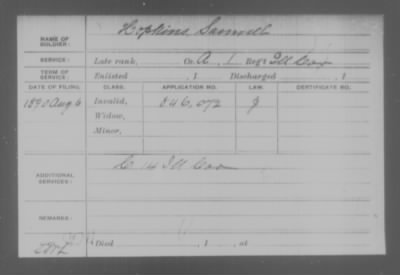 NAME OF SOLDIER: Hopkins, Samuel
SERVICE: Late rank, Co. A, 1 Reg't Ill Cav
TERM OF SERVICE: Enlisted , 1 Discharged , 1
DATE OF FILING. CLASS. APPLICATION NO. LAW. CERTIFICATE NO.
1890 Aug 6 Invalid, 846,072 J
Widow,
Minor,
C 14 Ill Cav
ADDITIONAL SERVICES:
REMARKS:
Died , 1 , at